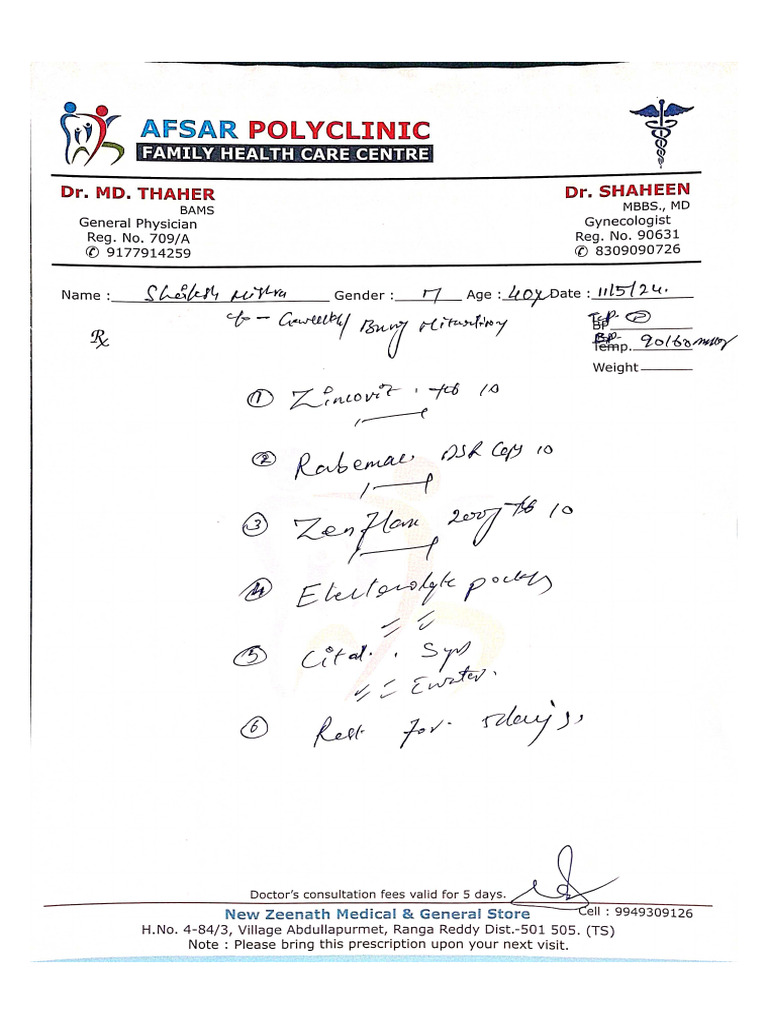 AFSAR POLYCLINIC
FAMILY HEALTH CARE CENTRE
Dr. MD. THAHER
BAMS
General Physician
Reg. No. 709/A
✆ 9177914259
Dr. SHAHEEN
MBBS., MD
Gynecologist
Reg. No. 90631
✆ 8309090726
Name : Gender : M Age : 40y Date : 11/5/24.
℞
BP
Temp. 90/60 mmHg
Weight
① Zincovit. tab 10
② Rabemac DSR Cap 10
③ Zenflox 200g tab 10
④ Electrolyte
⑤ Cital. Syp
water.
⑥ Rest for 5days.
Doctor's consultation fees valid for 5 days.
New Zeenath Medical & General Store
Cell : 9949309126
H.No. 4-84/3, Village Abdullapurmet, Ranga Reddy Dist.-501 505. (TS)
Note : Please bring this prescription upon your next visit.